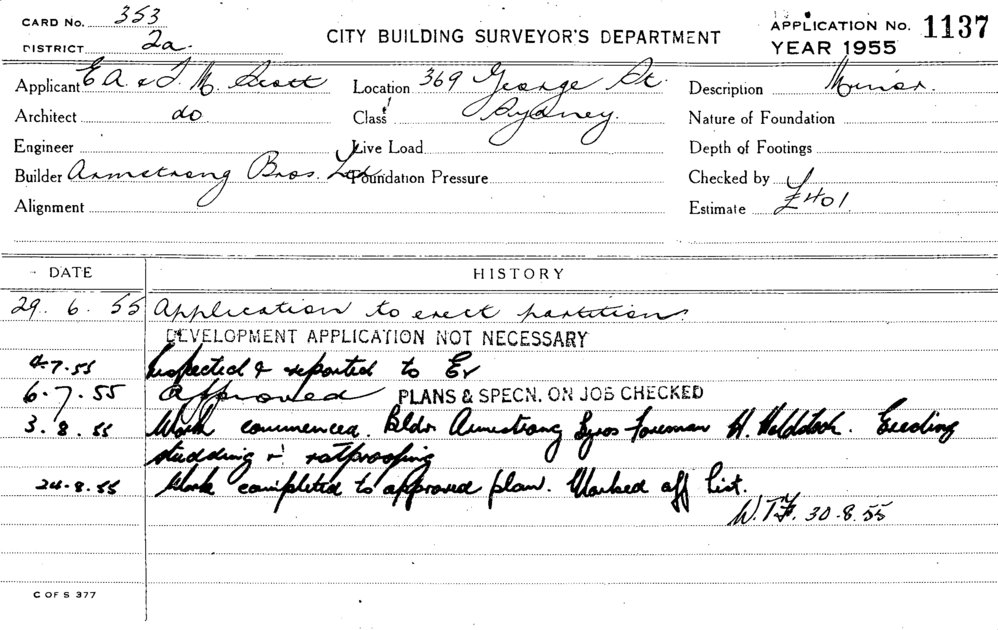 CARD No. 353
DISTRICT 2a.
CITY BUILDING SURVEYOR'S DEPARTMENT
APPLICATION No. 1137
YEAR 1955
Applicant E A. & T. M. Scott
Location 369 George St.
Description Minor.
Architect do
Class 1 Sydney.
Nature of Foundation
Engineer
Live Load
Depth of Footings
Builder Armstrong Bros. Ltd
Foundation Pressure
Checked by
Alignment
Estimate £401
DATE HISTORY
29. 6. 55 Application to erect partitions.
DEVELOPMENT APPLICATION NOT NECESSARY
4-7-55 Inspected & reported to
6-7-55 Approved PLANS & SPECN. ON JOB CHECKED
3. 8. 55 Work commenced. Bldr Armstrong Bros Foreman H. Erecting
studding & ratproofing
24-8-55 Work completed to approved plan. Marked off list.
W.T.F. 30-8-55
C OF S 377